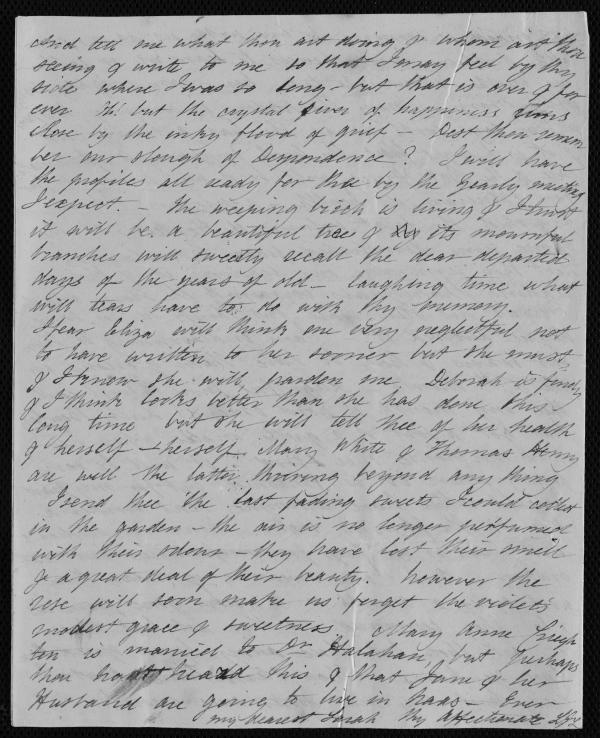 and tell me what thou art doing & whom art thou
seeing & write to me so that I may feel by thy
side where I was so long - but that is over & for
ever Ah! but the crystal river of happiness runs
close by the inky flood of grief - Dost thou remem
ber our slough of Despondence? I will have
the profiles all ready for thee by the Yearly meeting
I expect. - The weeping birch is living & I trust
it will be a beautiful tree & its mournful
branches will sweetly recall the dear departed
days of the years of old - laughing time what
will tears have to do with thy memory.
I fear Eliza will think me very neglectful not
to have written to her sooner but she must
& I know she will pardon me Deborah is finely
& I think looks better than she has done this
long time but she will tell thee of her health
& herself - herself Mary White & Thomas Henry
are well the latter thriving beyond any thing
I send thee the last fading sweets I could collect
in the garden - the air is no longer perfumed
with their odour - they have lost their smell
& a great deal of their beauty. however the
rose will soon make us forget the violet's
modest grace & sweetness Mary Anne Creigh
ton is married to Dr Halahan, but perhaps
thou hast heard this & that Jane & her
Husband are going to live in Naas - Ever
my dearest Sarah thy affectionate